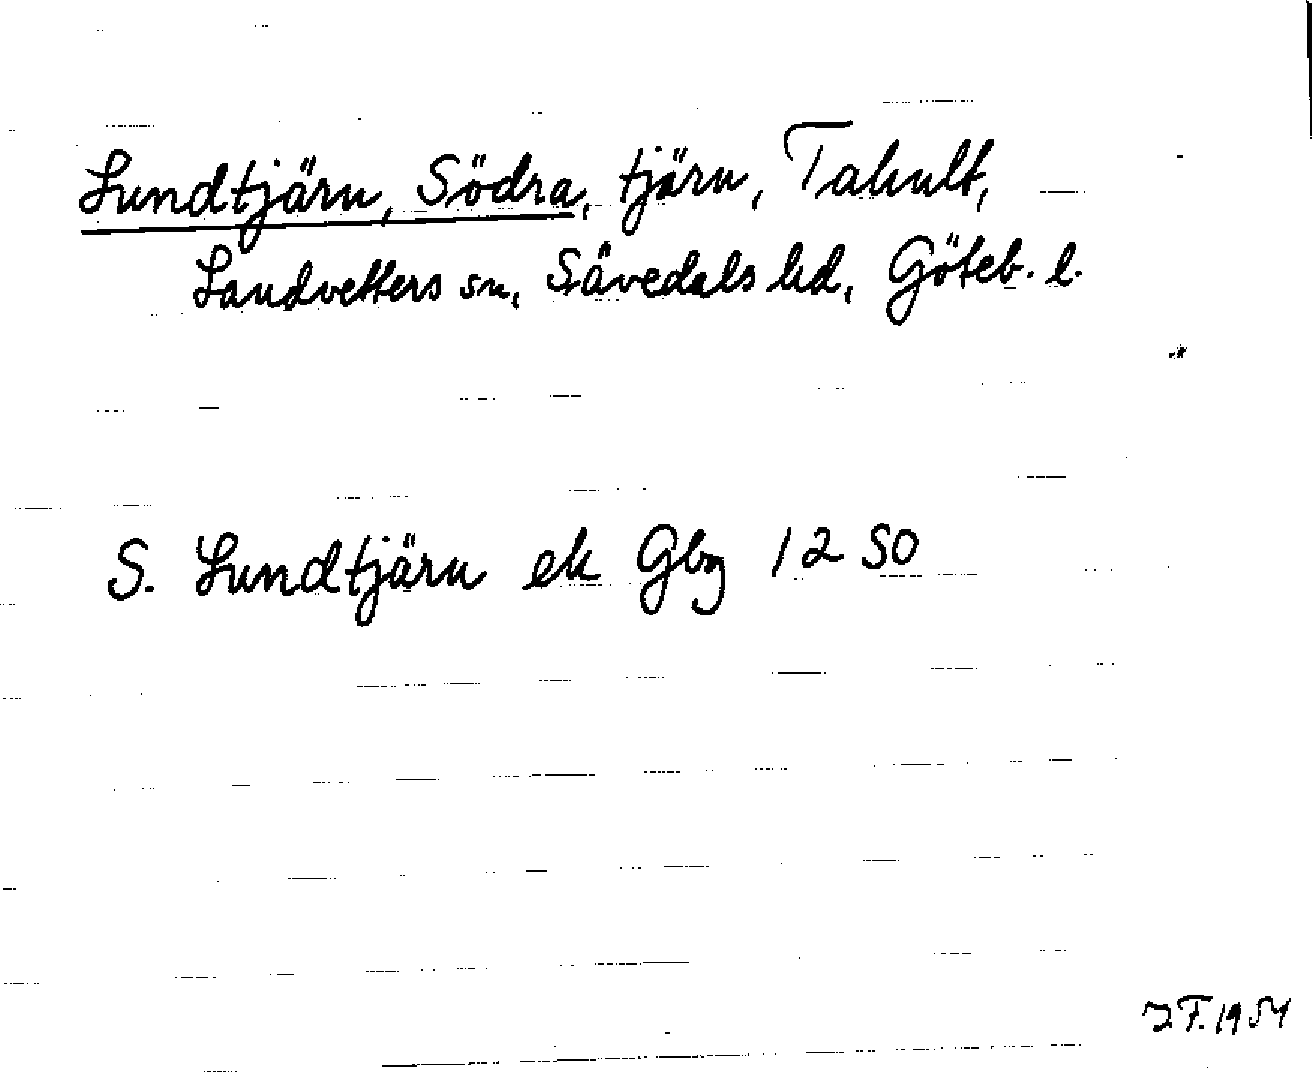 Lundtjärn, Södra, tjärn, Tahult,
Landvetters sn, Sävedals hd, Göteb. l.
S. Lundtjärn ek Gbg 12 SO
1954